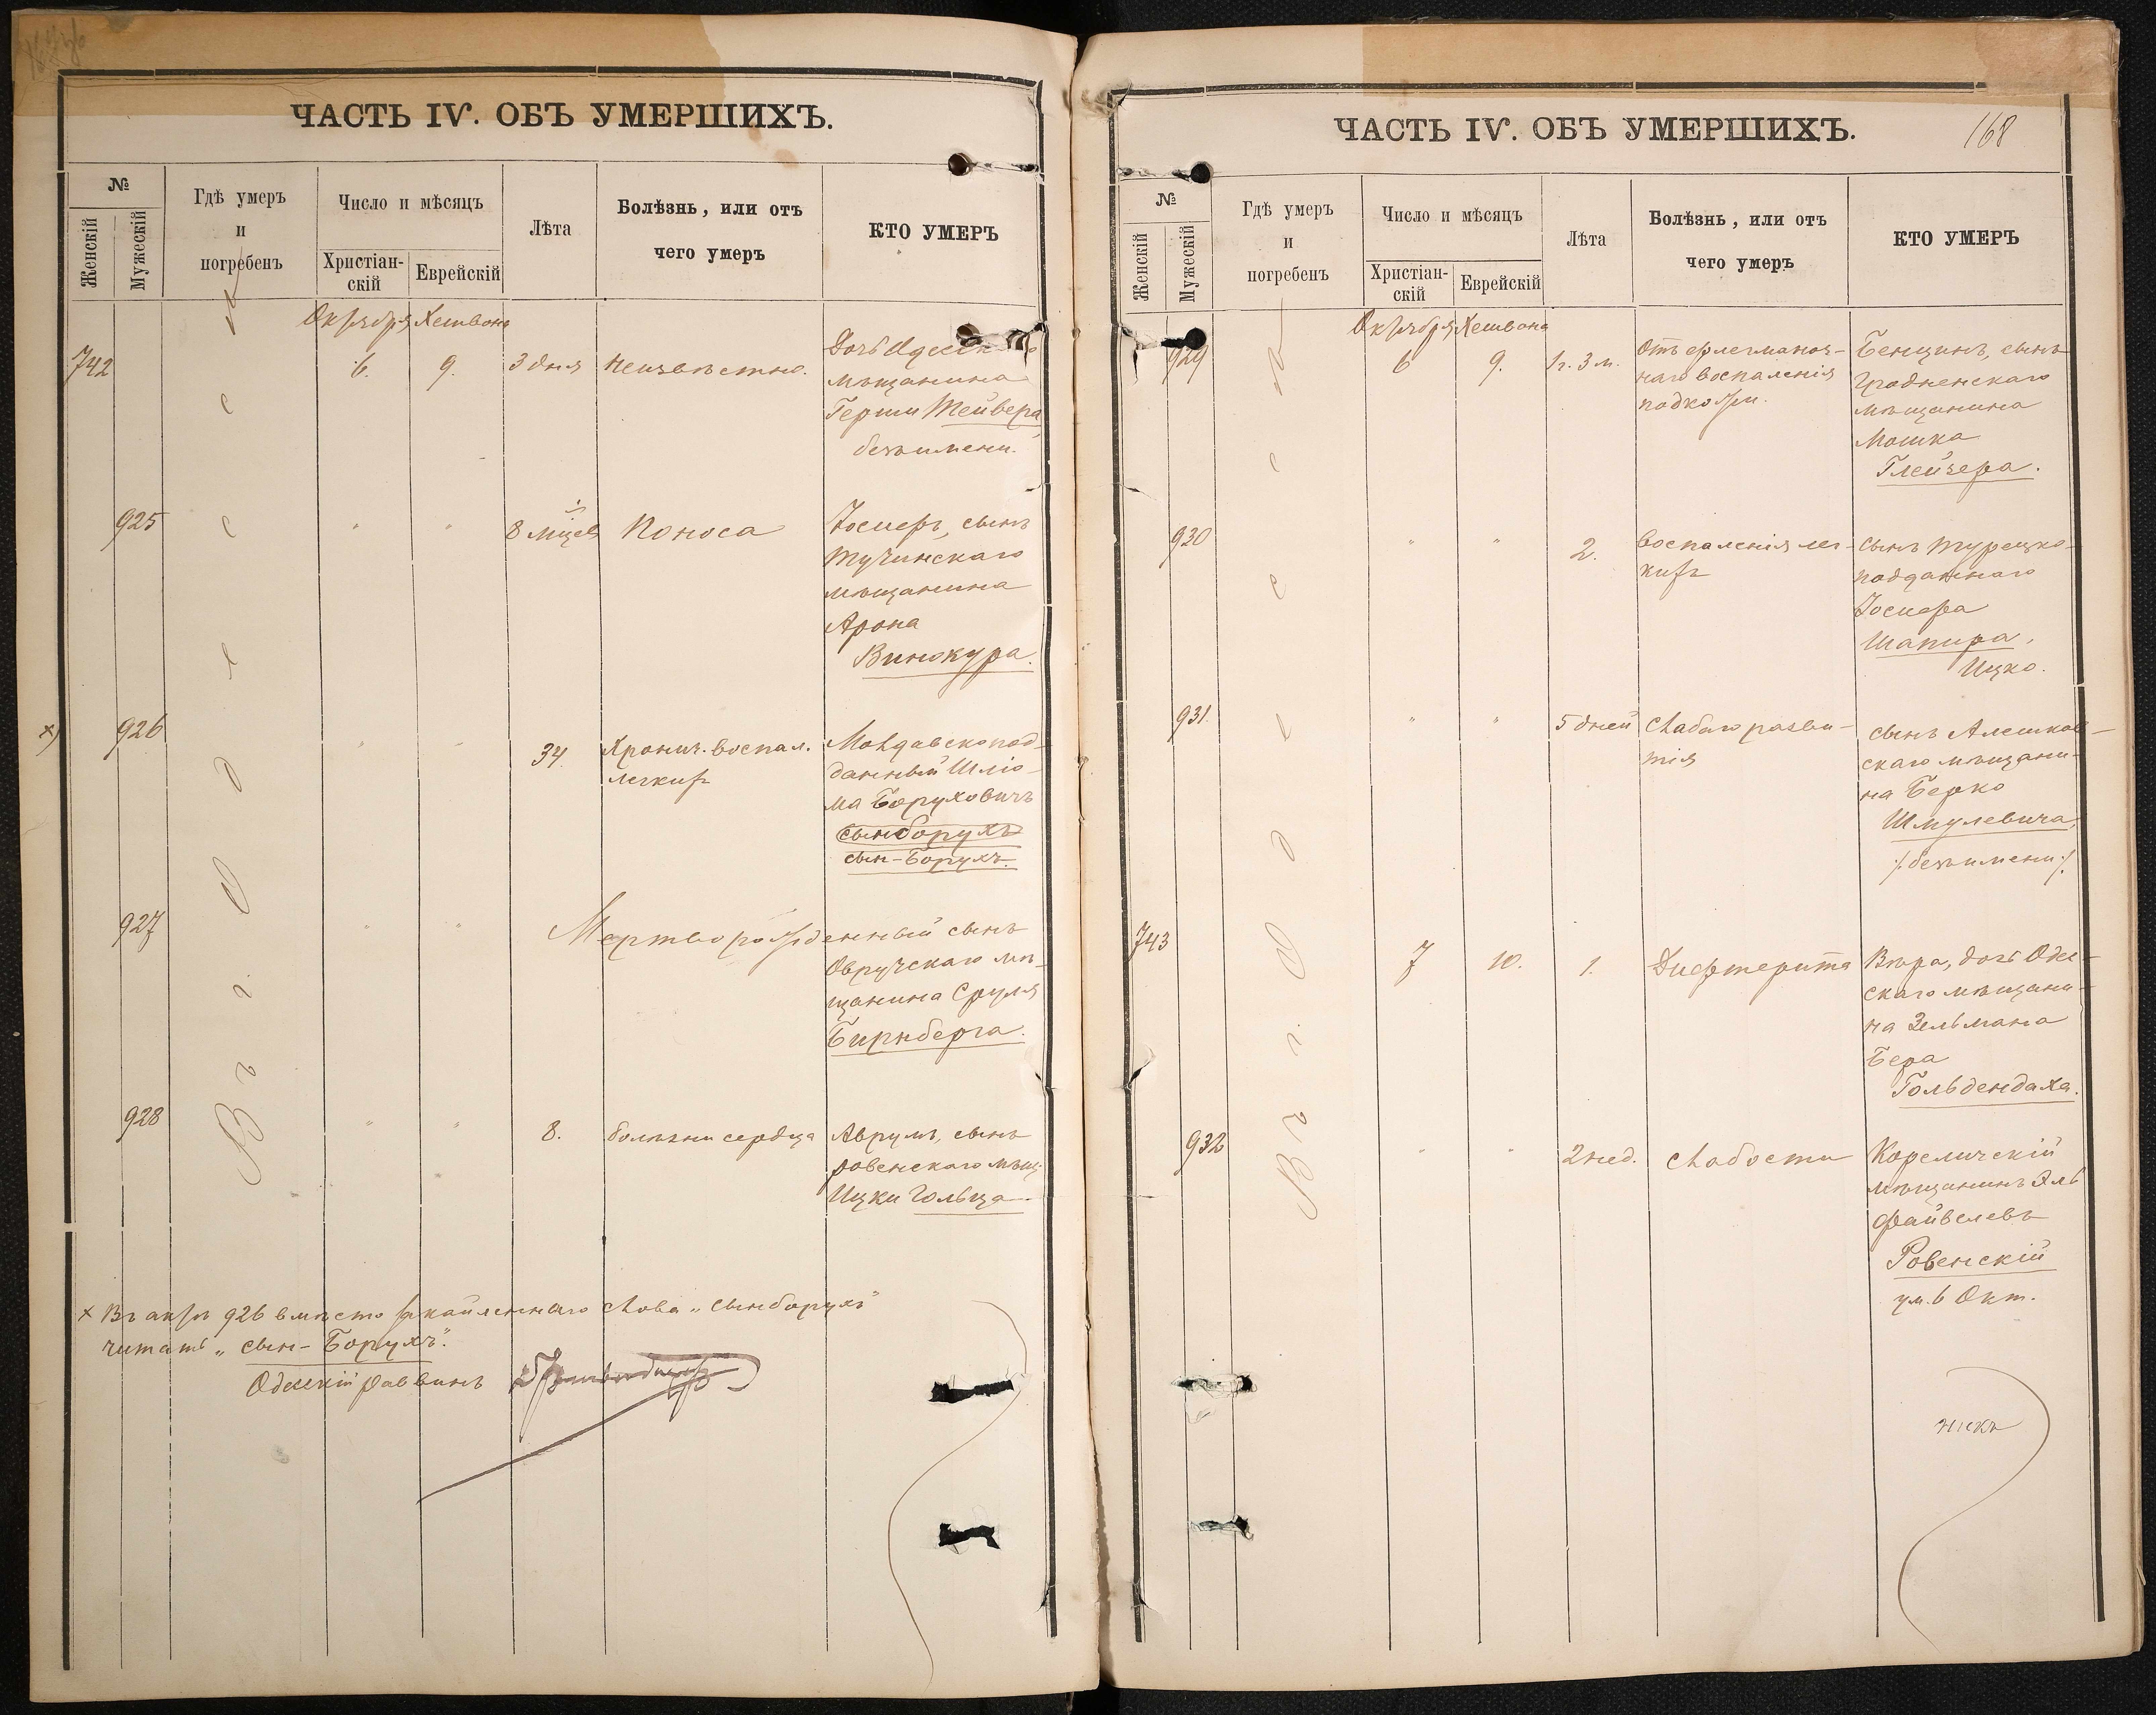 ЧАСТЬ IV. ОБЪ УМЕРШИХЪ.
№
Женскій
Мужескій
Гдѣ умеръ
и
погребенъ
Число и мѣсяцъ
Христіан-
скій
Еврейскій
Лѣта
Болѣзнь, или отъ
чего умеръ
КТО УМЕРЪ
Въ г. Одессѣ
Октября Хешвона
742
6.
9.
3 дня
Неизвѣстно.
Дочь Одесск
мѣщанина
Герши Тейвера,
безъимени.
925
"
"
8 мцев
Поноса
Іосифъ, сынъ
Тучинскаго
мѣщанина
Арона
Винокура.
х)
926
"
"
34.
Хронич. воспал.
легкихъ
Молдавскопод-
данный Шлio-
ма Боруховичъ
сынборухъ
сын-Борухъ.
927
"
"
Мертворожденный сынъ
Овручскаго мѣ-
щанина Сруля
Бирнберга.
928
"
"
8.
болѣзни сердца
Аврумъ, сынъ
ровенскаго мѣщ.
Ицки Гольца
х Въ актѣ 926 вмѣсто слова "сынборухъ"
читать "сын-Борухъ".
Одесскій раввинъ
ЧАСТЬ IV. ОБЪ УМЕРШИХЪ.
168
№
Женскій
Мужескій
Гдѣ умеръ
и
погребенъ
Число и мѣсяцъ
Христіан-
скій
Еврейскій
Лѣта
Болѣзнь, или отъ
чего умеръ
КТО УМЕРЪ
Въ г. Одессѣ
Октября Хешвона
929
6
9.
1г. 3 м.
Отъ флегманоз-
наго воспаленія
подкожи.
Бенціинъ, сынъ
Гродненскаго
мѣщанина
Мошка
Глейзера.
930
"
"
2.
Воспаленія лег-
кихъ
Сынъ турецко-
подданнаго
Іосифа
Шапира,
Ицко.
931.
"
"
5 дней
Слабаго разви-
тія
сынъ Алешков-
скаго мѣщани-
на Берко
Шмулевича,
/.безъимени./
743
7
10.
1.
Дифтерита
Вѣра, дочь Одес-
скаго мѣщани-
на Зельмана
Бера
Гольдендаха.
932
"
"
2 нед.
Слабости
Кореличскій
мѣщанинъ Эль
Файвелевъ
Ровенскій
ум. 6 Окт.